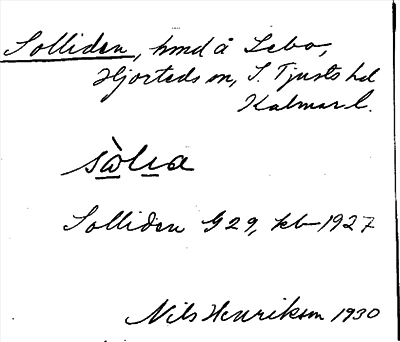 Solliden, hmd å Lebo,
Hjorteds sn, S. Tjusts hd
Kalmar l.
Solliden G 29, kb 1927
Nils Henrikson 1930